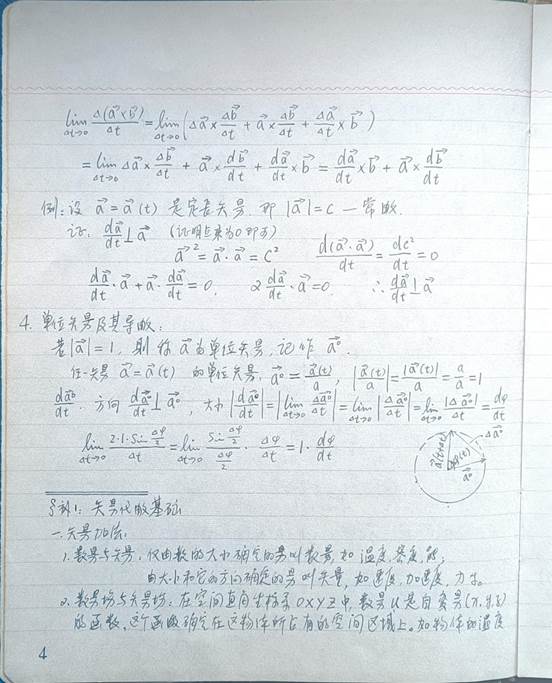 lim_{Δt→0} Δ(a⃗×b⃗)/Δt = lim_{Δt→0} (Δa⃗×Δb⃗/Δt + a⃗×Δb⃗/Δt + Δa⃗/Δt×b⃗)
= lim_{Δt→0} Δa⃗×Δb⃗/Δt + a⃗×db⃗/dt + da⃗/dt×b⃗ = da⃗/dt×b⃗ + a⃗×db⃗/dt
例:设 a⃗=a⃗(t) 是定长矢量 即 |a⃗|=c 一常数.
证: da⃗/dt⊥a⃗ (证明点乘为0即可)
a⃗²=a⃗·a⃗=C² d(a⃗·a⃗)/dt=dc²/dt=0
da⃗/dt·a⃗+a⃗·da⃗/dt=0. 2da⃗/dt·a⃗=0. ∴da⃗/dt⊥a⃗
4. 单位矢量及其导数:
若|a⃗|=1, 则称a⃗为单位矢量, 记作 a⃗⁰.
任一矢量 a⃗=a⃗(t) 的单位矢量, a⃗⁰=a⃗(t)/a, |a⃗(t)/a|=|a⃗(t)|/a=a/a=1
da⃗⁰/dt. 方向 da⃗⁰/dt⊥a⃗⁰, 大小 |da⃗⁰/dt|=|lim_{Δt→0} Δa⃗⁰/Δt|=lim_{Δt→0}|Δa⃗⁰/Δt|=lim_{Δt→0} |Δa⃗⁰|/Δt=dφ/dt
lim_{Δt→0} 2·1·Sin(Δφ/2)/Δt=lim_{Δt→0} Sin(Δφ/2)/(Δφ/2)·Δφ/Δt=1·dφ/dt
Δa⃗⁰
a⃗⁰
§附1: 矢量代数基础
一.矢量加法:
1.数量与矢量. 仅由数的大小确定的量叫数量, 如 温度,密度,能.
由大小和它的方向确定的量叫矢量, 如速度,加速度,力等.
2.数量场与矢量场: 在空间直角坐标系OXYZ中, 数量u是自变量(x,y,z)
的函数, 这个函数确定在这物体所占有的空间区域上。如物体的温度
4